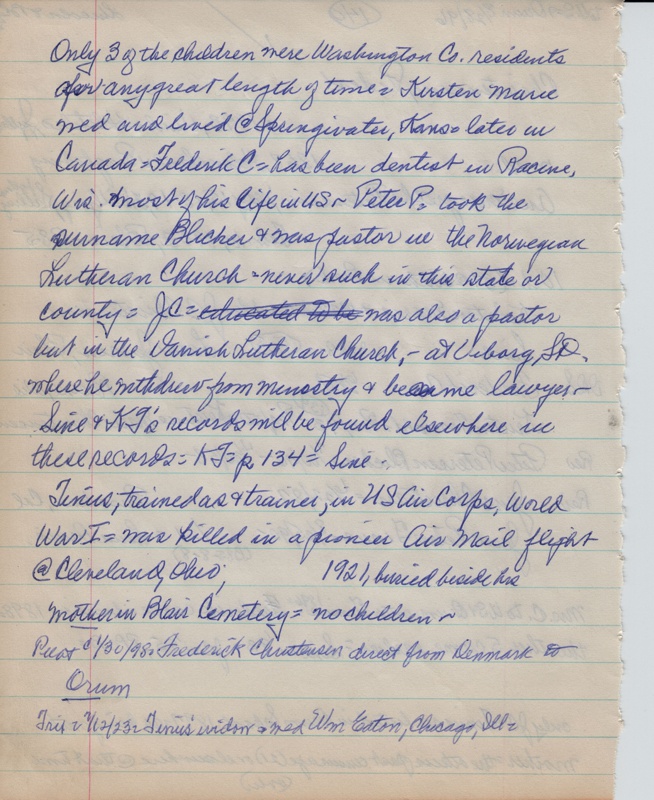 Only 3 of the children were Washington Co. residents
for any great length of time = Kirsten Marie
wed and lived @ Springwater, Kans = later in
Canada = Frederik C = has been dentist in Racine,
Wis. most of his life in US ~ Peter P = took the
surname Blicher & was pastor in the Norwegian
Lutheran Church - never such in this state or
county = JC = educated to be was also a pastor
but in the Danish Lutheran Church, - at Viborg, SD.
where he withdrew from ministry & became lawyer -
Sine & KJ's records will be found elsewhere in
these records = KJ = p 134 = Sine -
Tinius, trained as & trainer, in US Air Corps, World
War I = was killed in a pioneer Air Mail flight
@ Cleveland, Ohio, 1921, buried beside his
mother in Blair Cemetery = no children ~
Pilot 1/30/98 = Frederick Christensen direct from Denmark to
Orum
Trib = 7/12/23 = Tinius' widow = wed Wm Eaton, Chicago, Ill =